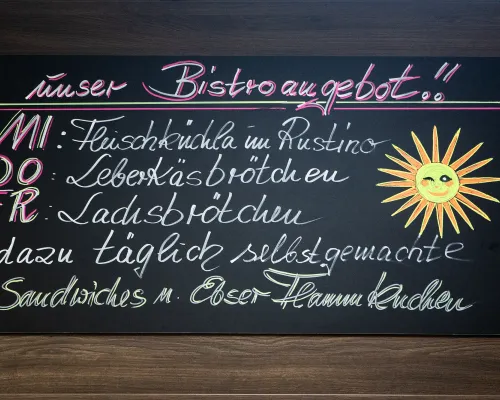 unser Bistroangebot!!
MI: Fleischküchla im Rustino
DO: Leberkäsbrötchen
FR: Lachsbrötchen
dazu täglich selbstgemachte
Sandwiches u. Ebser Flammkuchen